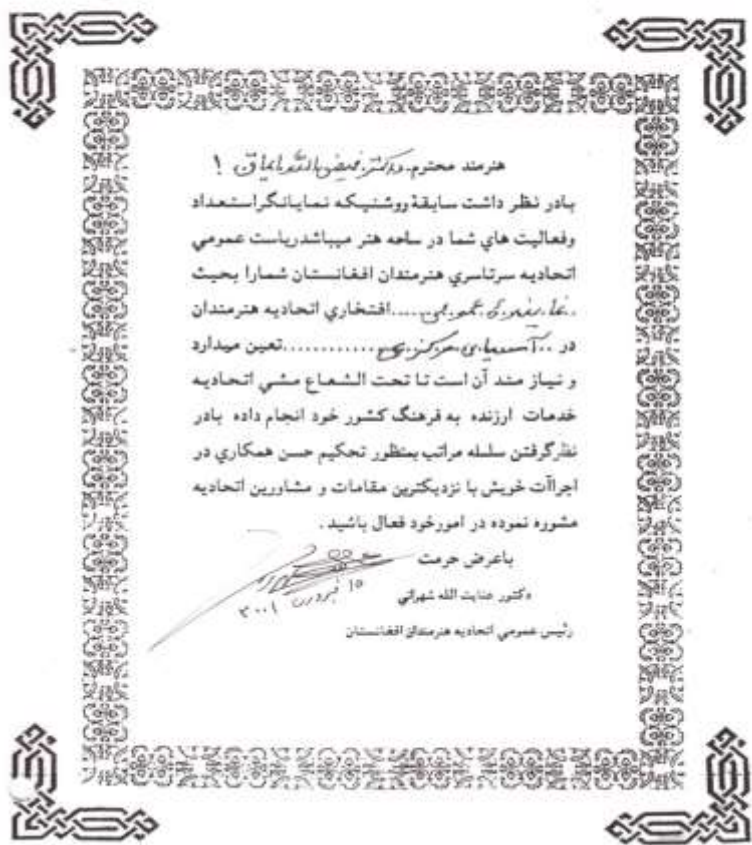 هنرمند محترم. دکتر فیض الله ایماق !
بادر نظر داشت سابقهٔ روشنیکه نمایانگراستعداد
وفعالیت هاي شما در ساحه هنر میباشدریاست عمومي
اتحادیه سرتاسري هنرمندان افغانستان شمارا بحیث
نمایندهٔ عمومی.....افتخاري اتحادیه هنرمندان
در ..آسیای مرکزی............تعین میدارد
و نیاز مند آن است تا تحت الشعاع مشي اتحادیه
خدمات ارزنده به فرهنگ کشور خود انجام داده بادر
نظرگرفتن سلسله مراتب بمنظور تحکیم حسن همکاري در
اجراآت خویش با نزدیکترین مقامات و مشاورین اتحادیه
مشوره نموده در امورخود فعال باشید .
باعرض حرمت
۱۵ فبروری ۲۰۰۱
دکتور عنایت الله شهراني
رئیس عمومي اتحادیه هنرمندان افغانستان